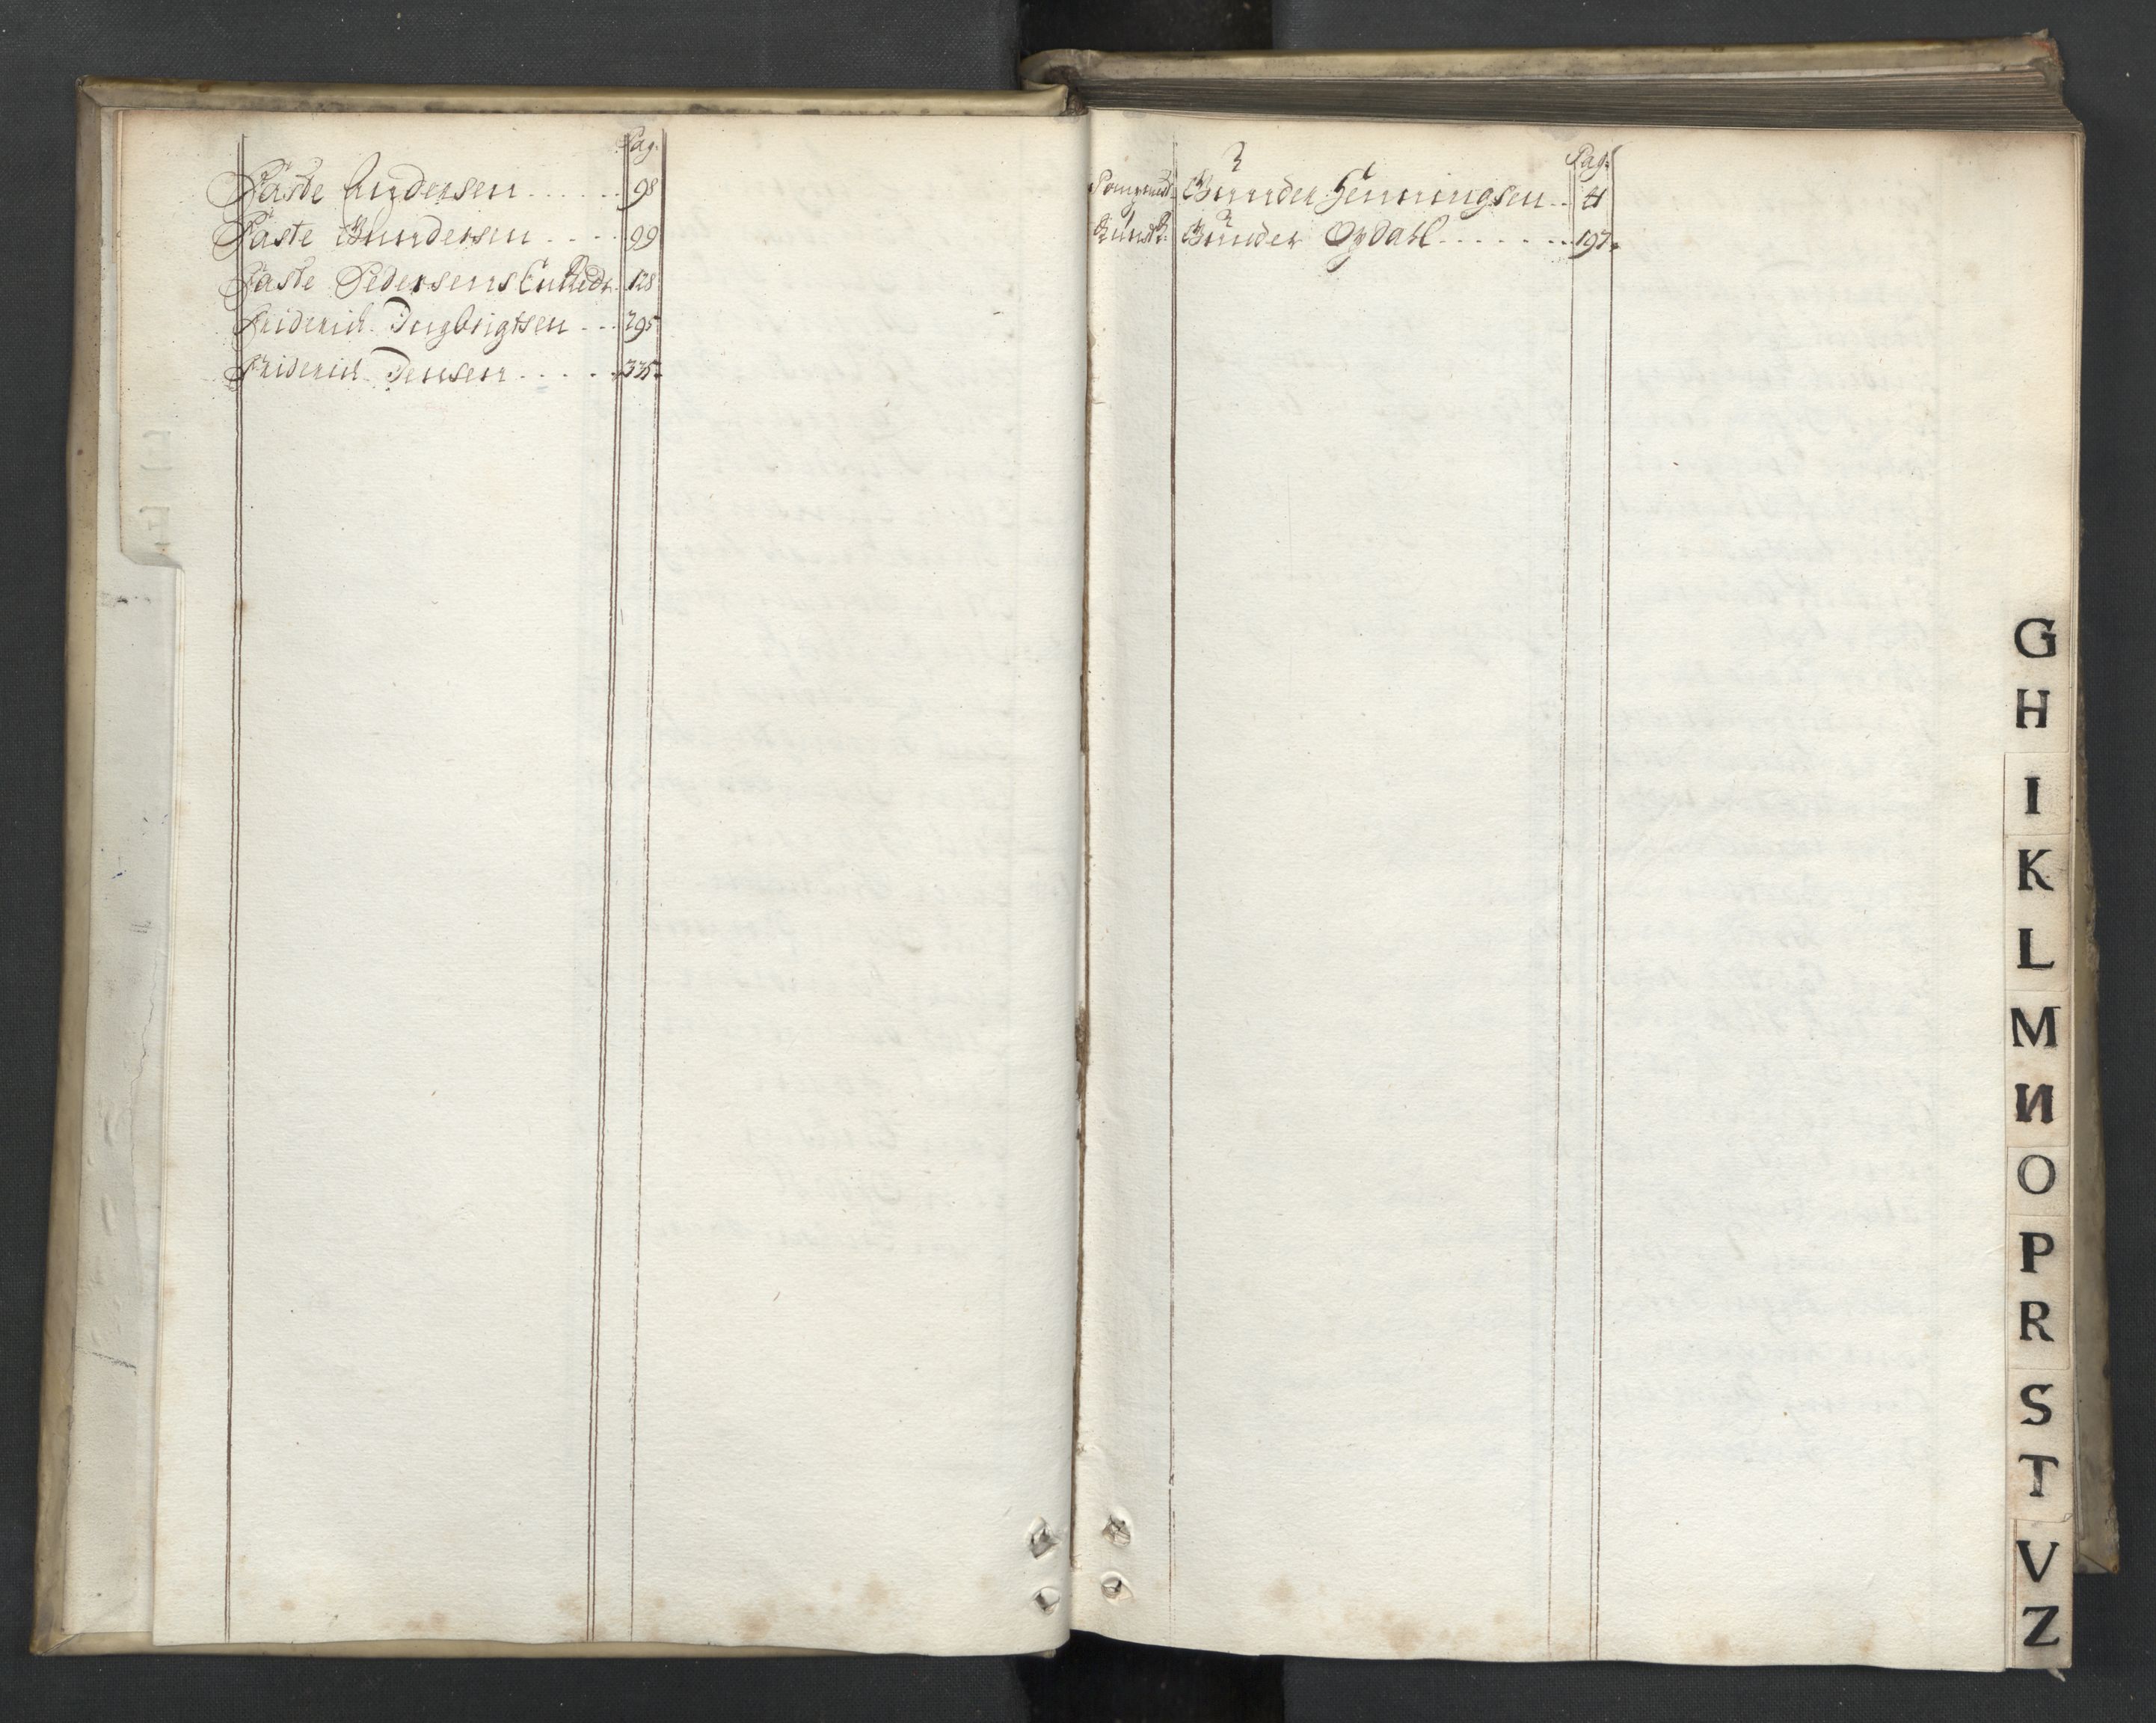 Pag:
Faste Andersen . . . . . . 98
Faste Gundersen . . . . 99
Faste Pedersens Enke 128
Friderich Ingbrigtsen . . . 295
Friderich Jensen . . . . . 335
Pag:
Gunder Henningsen . . 41
Gunder Opdahl . . . . . . . 197
G
H
I
K
L
M
N
O
P
R
S
T
V
Z